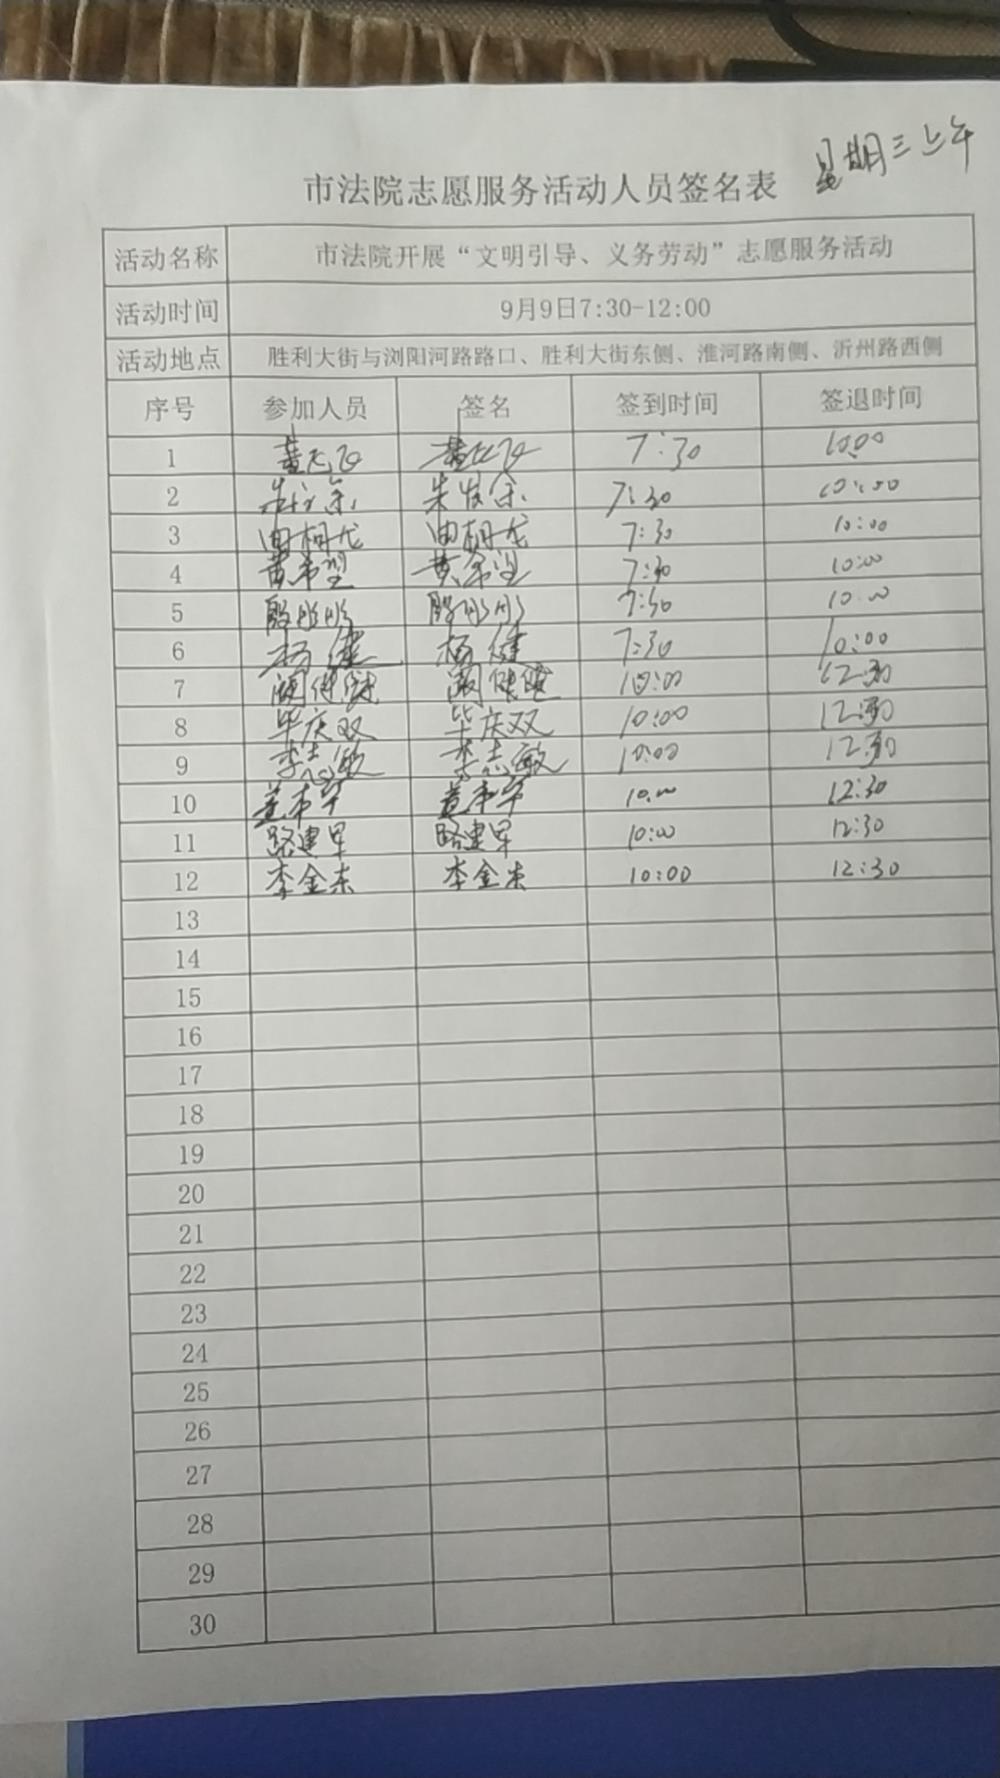 星期三上午
市法院志愿服务活动人员签名表
活动名称 市法院开展“文明引导、义务劳动”志愿服务活动
活动时间 9月9日7:30-12:00
活动地点 胜利大街与浏阳河路路口、胜利大街东侧、淮河路南侧、沂州路西侧
序号 参加人员 签名 签到时间 签退时间
1 黄飞 黄飞 7:30 10:00
2 朱 朱 7:30 10:00
3 由相龙 由相龙 7:30 10:00
4 黄希望 黄希望 7:30 10:00
5 殷彤彤 殷彤彤 7:30 10:00
6 杨健 杨健 7:30 10:00
7 10:00 12:30
8 毕庆双 毕庆双 10:00 12:30
9 李志敏 李志敏 10:00 12:30
10 董本军 董本军 10:00 12:30
11 路建军 路建军 10:00 12:30
12 李金来 李金来 10:00 12:30
13
14
15
16
17
18
19
20
21
22
23
24
25
26
27
28
29
30